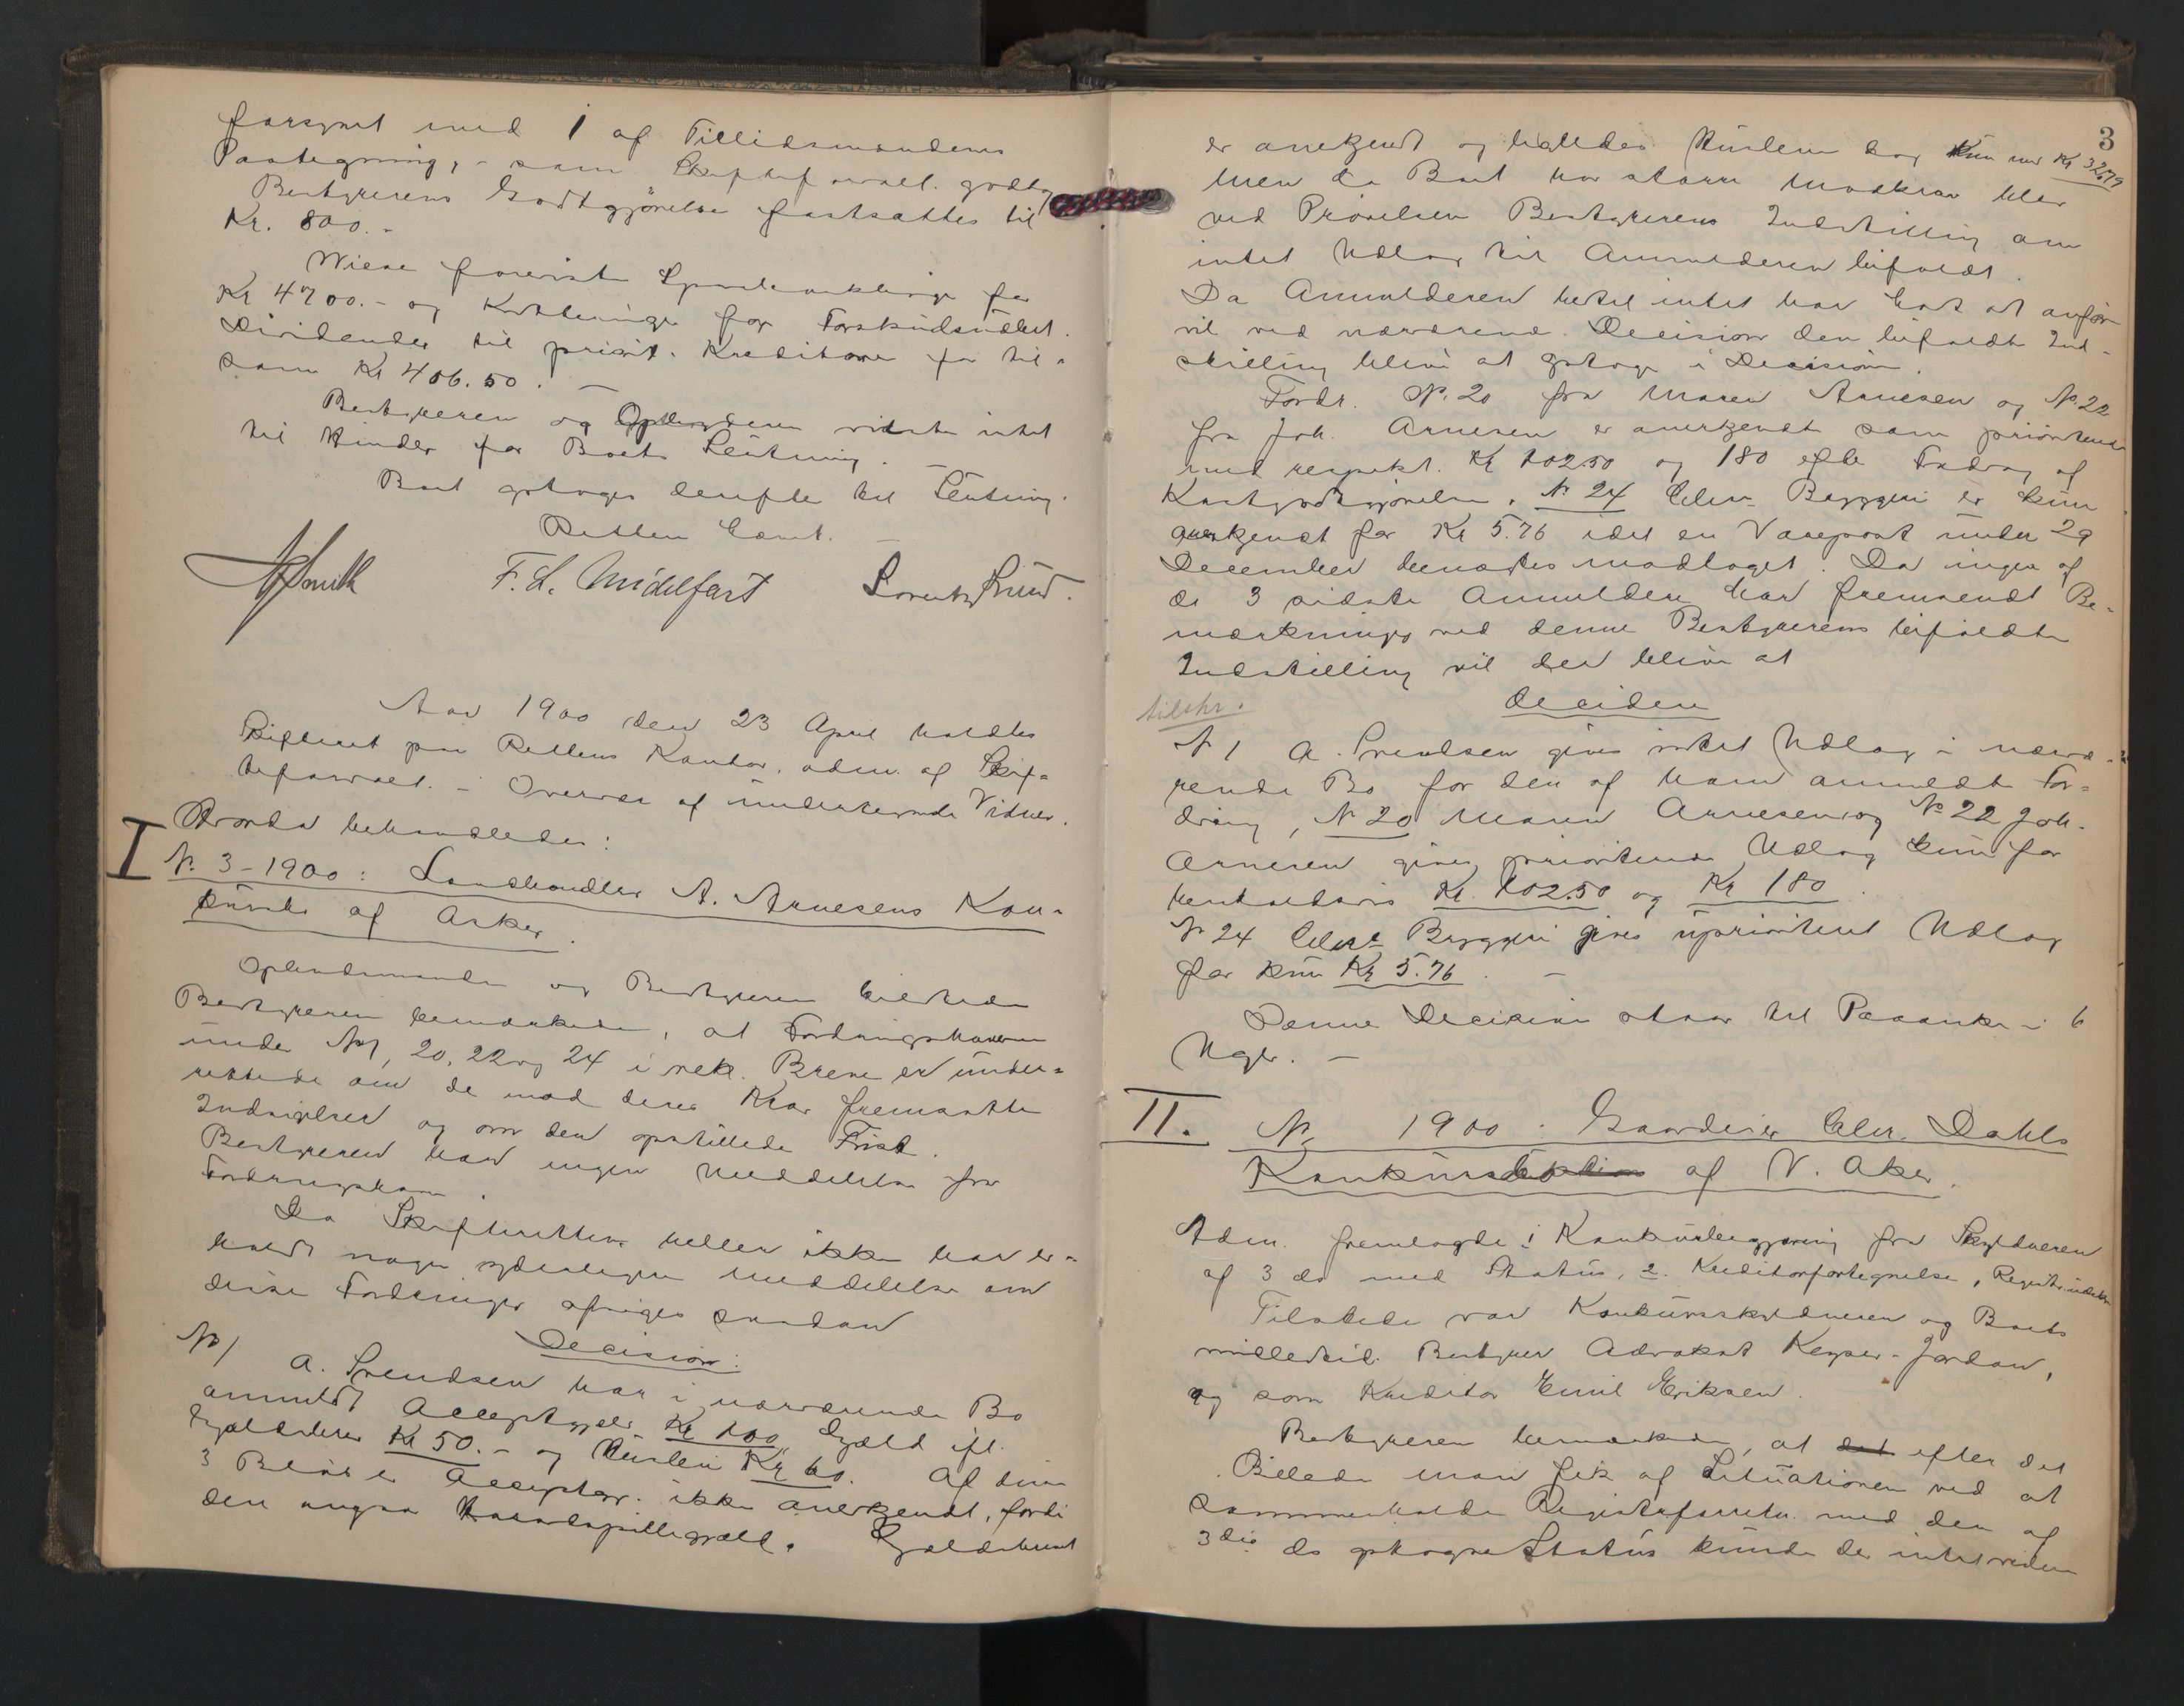 forsynet med 1 af Tillidsmændenes
Paategning, - som Skifteforvalt. godtog
Bestyrerens Godtgjørelse fastsattes til
Kr. 800.-
Videre forevist for
Kr 4700.- og Kvitteringer for Forskudsudbet.
Dividender til priorit. Kreditorer for til=
sam Kr 406.50. -
Bestyreren og vidste intet
til Hinder for Boets Slutning. -
Boet optoges derefter til Slutning.
Retten hævet. -
F. L. Midelfart Lorentz Lund.
Aar 1900 den 23 April holdtes
Skifteret paa Rettens Kontor, adm. af Skif=
teforvalt. - Overvær af undertegnede Vidner.
Hvorda behandledes:
I
No. 3-1900: Landhandler A. Arnesens Kon=
kursbo af Asker.
Opbudsmanden og Bestyreren tilstede
Bestyreren bemærkede, at Fordringshaverne
under No 1, 20, 22 og 24 i rek. Breve er under=
rettede om de mod deres Krav fremsatte
Indsigelser og om den opstillede Frist.
Bestyreren har ingen Meddelelse fra
Fordringshav.
Da Skifteretten heller ikke har er=
holdt nogen yderligere Meddelelse om
disse Fordringer afsiges saadan
Decision:
No 1 A. Svendsen har i nærværende Bo
anmeldt Acceptgjæld Kr 100, Gjæld ifl.
Gjældsbrev Kr 50.- og Husleie Kr 60. Af disse
3 Beløb er Acceptgj. ikke anerkjendt, fordi
den angaa Hasardspillegjæld. Gjældsbrevet
3
er anerkjendt og ligeledes Husleien dog kun med Kr 32.79
Men da Boet har større Modkrav blev
ved Prøvelsen Bestyrerens Indstilling om
intet Udlæg til Anmelderen bifaldt.
Da Anmelderen hertil intet har havt at anføre
vil ved nærværende Decision den bifaldte Ind-
stilling blive at optage i Decision.
Fordr. No. 20 fra Maren Arnesen og No. 22
fra Joh. Arnesen er anerkjendt som prioriterede
med respekt. Kr 102.50 og 180 efter Fradrag af
Kostgodtgjørelse. No 24 Bryggeri er kun
anerkjendt for Kr 5.76 idet en Varepost under 29
December benægtes modtaget. Da ingen af
de 3 sidste Anmeldere har fremsendt Be=
mærkninger ved denne Bestyrerens bifaldte
Indstilling vil der blive at
decidere
tilskr.
No 1 A. Svendsen gives intet Udlæg i nærvæ=
rende Bo for den af ham anmeldte For=
dring, No 20 Maren Arnesen og No 22 Joh.
Arnesen gives prioriteret Udlæg kun for
henholdsvis Kr. 102.50 og Kr 180.
No 24 Bryggeri gives uprioriteret Udlæg
for kun Kr 5.76. -
Denne Decision staar til Paaanke i 6
Uger. -
II. No. 1900: Gaardeier Chr. Dahls
Konkursbo af V. Aker.
Adm. fremlagde 1 Konkursbegjæring fra Skyldneren
af 3 ds med Status, 2. Kreditorfortegnelse,
Tilstede var Konkursskyldneren og Boets
midlertid. Bestyrer Advokat Keyser-Jordan,
og som Kreditor Emil Eriksen.
Bestyreren bemærkede, at det efter det
Billede man fik af Situationen ved at
sammenholde Registerforretn. med den af
3die ds optagne Status kunde der intet videre